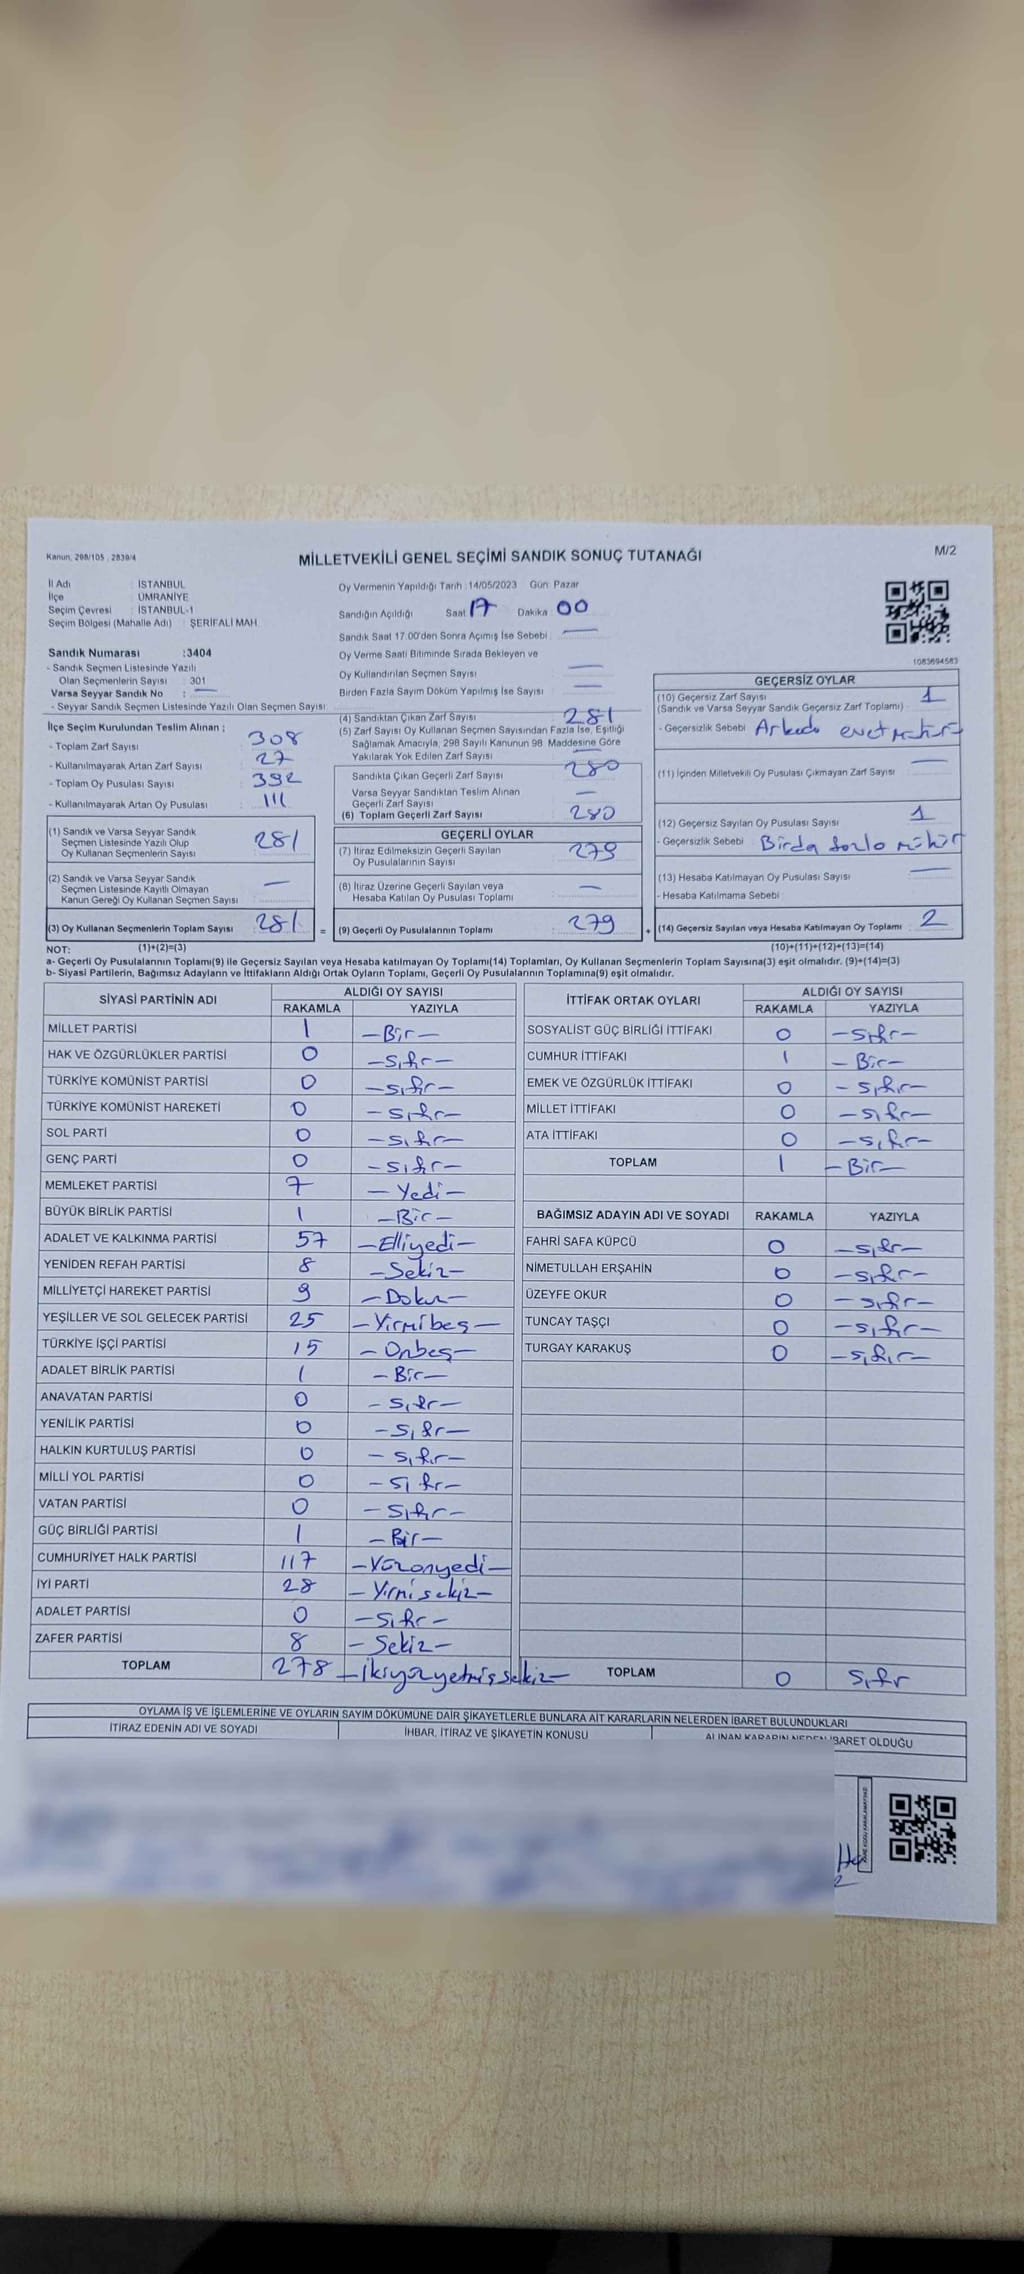 Kanun, 298/105 , 2839/4
MİLLETVEKİLİ GENEL SEÇİMİ SANDIK SONUÇ TUTANAĞI
M/2
İl Adı : İSTANBUL
İlçe : ÜMRANİYE
Seçim Çevresi : İSTANBUL-1
Seçim Bölgesi (Mahalle Adı) : ŞERİFALİ MAH.
Sandık Numarası :3404
- Sandık Seçmen Listesinde Yazılı
Olan Seçmenlerin Sayısı : 301
Varsa Seyyar Sandık No : —
- Seyyar Sandık Seçmen Listesinde Yazılı Olan Seçmen Sayısı :
Oy Vermenin Yapıldığı Tarih : 14/05/2023 Gün: Pazar
Sandığın Açıldığı Saat 17 Dakika 00
Sandık Saat 17.00'den Sonra Açımış İse Sebebi : —
Oy Verme Saati Bitiminde Sırada Bekleyen ve
Oy Kullandırılan Seçmen Sayısı : —
Birden Fazla Sayım Döküm Yapılmış İse Sayısı : —
1083694583
İlçe Seçim Kurulundan Teslim Alınan ;
- Toplam Zarf Sayısı : 308
- Kullanılmayarak Artan Zarf Sayısı : 27
- Toplam Oy Pusulası Sayısı : 392
- Kullanılmayarak Artan Oy Pusulası : 111
(1) Sandık ve Varsa Seyyar Sandık
Seçmen Listesinde Yazılı Olup
Oy Kullanan Seçmenlerin Sayısı : 281
(2) Sandık ve Varsa Seyyar Sandık
Seçmen Listesinde Kayıtlı Olmayan
Kanun Gereği Oy Kullanan Seçmen Sayısı : —
(3) Oy Kullanan Seçmenlerin Toplam Sayısı : 281 =
(4) Sandıktan Çıkan Zarf Sayısı : 281
(5) Zarf Sayısı Oy Kullanan Seçmen Sayısından Fazla İse, Eşitliği
Sağlamak Amacıyla, 298 Sayılı Kanunun 98. Maddesine Göre
Yakılarak Yok Edilen Zarf Sayısı : —
Sandıkla Çıkan Geçerli Zarf Sayısı : 280
Varsa Seyyar Sandıktan Teslim Alınan
Geçerli Zarf Sayısı : —
(6) Toplam Geçerli Zarf Sayısı : 280
GEÇERLİ OYLAR
(7) İtiraz Edilmeksizin Geçerli Sayılan
Oy Pusulalarının Sayısı : 279
(8) İtiraz Üzerine Geçerli Sayılan veya
Hesaba Katılan Oy Pusulası Toplamı : —
(9) Geçerli Oy Pusulalarının Toplamı : 279 +
GEÇERSİZ OYLAR
(10) Geçersiz Zarf Sayısı : 1
(Sandık ve Varsa Seyyar Sandık Geçersiz Zarf Toplamı)
- Geçersizlik Sebebi : evet
(11) İçinden Milletvekili Oy Pusulası Çıkmayan Zarf Sayısı : —
(12) Geçersiz Sayılan Oy Pusulası Sayısı : 1
- Geçersizlik Sebebi : Birda fazla mühür
(13) Hesaba Katılmayan Oy Pusulası Sayısı : —
- Hesaba Katılmama Sebebi
(14) Geçersiz Sayılan veya Hesaba Katılmayan Oy Toplamı : 2
NOT: (1)+(2)=(3) (10)+(11)+(12)+(13)=(14)
a- Geçerli Oy Pusulalarının Toplamı(9) ile Geçersiz Sayılan veya Hesaba katılmayan Oy Toplamı(14) Toplamları, Oy Kullanan Seçmenlerin Toplam Sayısına(3) eşit olmalıdır. (9)+(14)=(3)
b- Siyasi Partilerin, Bağımsız Adayların ve İttifakların Aldığı Ortak Oyların Toplamı, Geçerli Oy Pusulalarının Toplamına(9) eşit olmalıdır.
SİYASİ PARTİNİN ADI ALDIĞI OY SAYISI
RAKAMLA YAZIYLA
MİLLET PARTİSİ 1 —Bir—
HAK VE ÖZGÜRLÜKLER PARTİSİ 0 —sıfır—
TÜRKİYE KOMÜNİST PARTİSİ 0 —sıfır—
TÜRKİYE KOMÜNİST HAREKETİ 0 —sıfır—
SOL PARTİ 0 —sıfır—
GENÇ PARTİ 0 —sıfır—
MEMLEKET PARTİSİ 7 —Yedi—
BÜYÜK BİRLİK PARTİSİ 1 —Bir—
ADALET VE KALKINMA PARTİSİ 57 —Elliyedi—
YENİDEN REFAH PARTİSİ 8 —Sekiz—
MİLLİYETÇİ HAREKET PARTİSİ 9 —Dokuz—
YEŞİLLER VE SOL GELECEK PARTİSİ 25 —Yirmibeş—
TÜRKİYE İŞÇİ PARTİSİ 15 —Onbeş—
ADALET BİRLİK PARTİSİ 1 —Bir—
ANAVATAN PARTİSİ 0 —sıfır—
YENİLİK PARTİSİ 0 —sıfır—
HALKIN KURTULUŞ PARTİSİ 0 —sıfır—
MİLLİ YOL PARTİSİ 0 —sıfır—
VATAN PARTİSİ 0 —sıfır—
GÜÇ BİRLİĞİ PARTİSİ 1 —Bir—
CUMHURİYET HALK PARTİSİ 117 —Yüzonyedi—
İYİ PARTİ 28 —Yirmisekiz—
ADALET PARTİSİ 0 —sıfır—
ZAFER PARTİSİ 8 —Sekiz—
TOPLAM 278 —ikiyüzyetmişsekiz—
İTTİFAK ORTAK OYLARI ALDIĞI OY SAYISI
RAKAMLA YAZIYLA
SOSYALİST GÜÇ BİRLİĞİ İTTİFAKI 0 —sıfır—
CUMHUR İTTİFAKI 1 —Bir—
EMEK VE ÖZGÜRLÜK İTTİFAKI 0 —sıfır—
MİLLET İTTİFAKI 0 —sıfır—
ATA İTTİFAKI 0 —sıfır—
TOPLAM 1 —Bir—
BAĞIMSIZ ADAYIN ADI VE SOYADI RAKAMLA YAZIYLA
FAHRİ SAFA KÜPCÜ 0 —sıfır—
NİMETULLAH ERŞAHİN 0 —sıfır—
ÜZEYFE OKUR 0 —sıfır—
TUNCAY TAŞÇI 0 —sıfır—
TURGAY KARAKUŞ 0 —sıfır—
TOPLAM 0 sıfır
OYLAMA İŞ VE İŞLEMLERİNE VE OYLARIN SAYIM DÖKÜMÜNE DAİR ŞİKAYETLERLE BUNLARA AİT KARARLARIN NELERDEN İBARET BULUNDUKLARI
İTİRAZ EDENİN ADI VE SOYADI İHBAR, İTİRAZ VE ŞİKAYETİN KONUSU ALINAN KARARIN NEDEN İBARET OLDUĞU